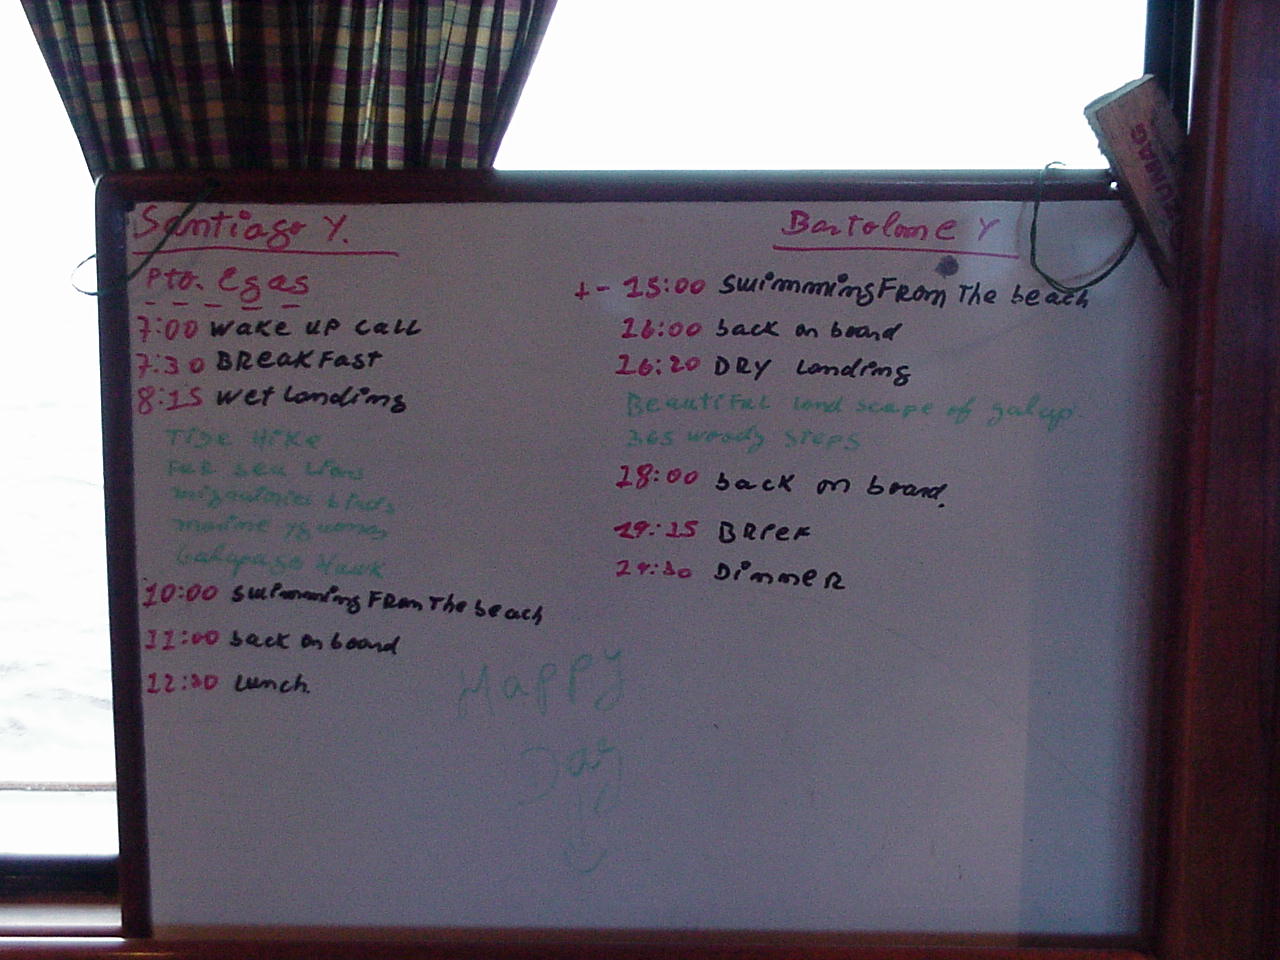 Santiago Y.
Pto. Egas
7:00 Wake up call
7:30 BReakFast
8:15 wet landing
Tide Hike
Fur sea Lions
migratories birds
marine yguanas
Galapago Hawk
10:00 swimming From The beach
11:00 back on board
12:30 Lunch.
Happy
Day
Bartolome Y
+- 15:00 swimming From The beach
16:00 back on board
16:20 DRY landing
Beautiful land scape of galap.
365 woody steps
18:00 back on board.
19:15 BRieF
19:30 DinneR